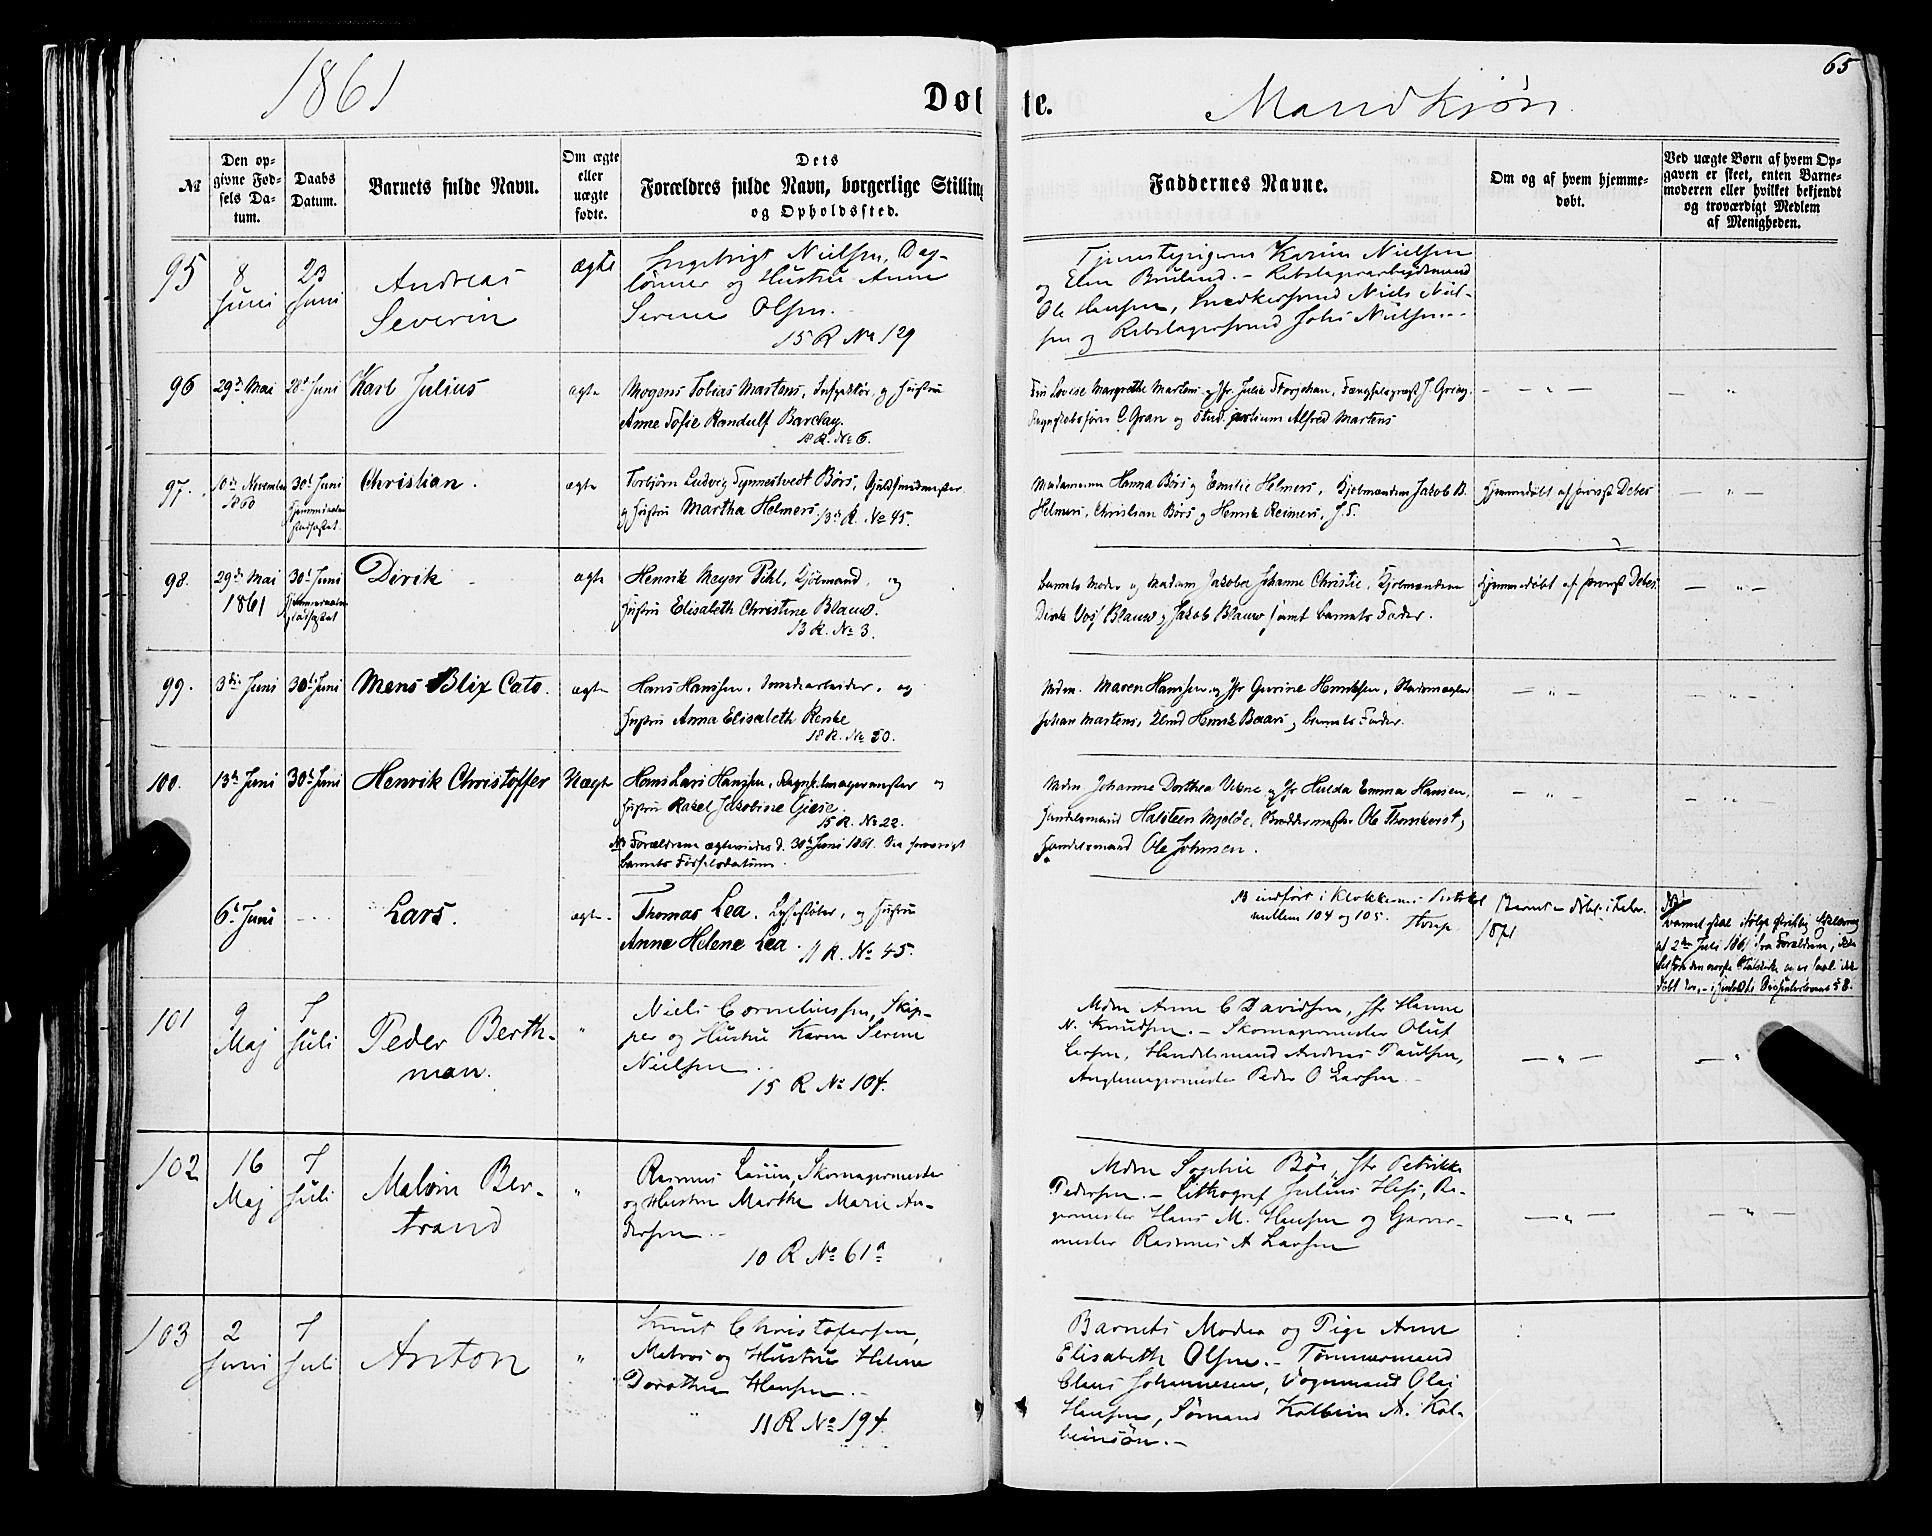 1861
Døbte.
Mandkjøn
65
№
Den op-
givne Fød-
sels Da-
tum.
Daabs
Datum.
Barnets fulde Navn.
Om ægte
eller
uægte
fødte.
Dets
Forældres fulde Navn, borgerlige Stilling
og Opholdssted.
Faddernes Navne.
Om og af hvem hjemme-
døbt.
Ved uægte Børn af hvem Op-
gaven er skeet, enten Barne-
moderen eller hvilket bekjendt
og troværdigt Medlem
af Menigheden.
95
8
Juni
23
Juni
Andreas
Severin
ægte
Ingebrigt Nielsen, Dag-
lönner og Hustru Anne
Serene Olsen.
15 R № 129
Tjenestepigerne Karin Nielsen
og Elen Bruland. – Rebslagerarbeidsmand
Ole Hansen, Snedkersvend Niels Niel-
sen og Rebslagersvend Johs Nielsen
96
29de Mai
28de Juni
Karl Julius
ægte
Mogens Tobias Martens, Inspektör, og Hustru
Anne Tofie Randulf Barclay.
18 R. № 6.
Louise Margrethe Martens og Jfr. Julie Storjohan,
C Gran og Stud. Alfred Martens
— „ —
— „
97.
10de November
1860
30te Juni
Hjemmedaaben
stadfæstet.
Christian.
ægte
Torbjörn Ludvig Fynnestvedt Börs, Guldsmedmester
og Hustru Martha Helmers. 13de R. № 45.
Madamerne Hanna Börs og Emilie Helmers, Kjöbmændene Jakob B.
Helmers, Christian Börs og Henrik Reimers,
Hjemmedöbt af Provst Debes
— „ —
98.
29de Mai
1861
30te Juni
Hjemmedaaben
stadfæstet
Dirik
ægte
Henrik Meyer Pihl, Kjöbmand, og
Hustru Elisabeth Christine Blauw.
13 R. № 3.
Barnets Moder og Madam Jakobe Johanne Christie, Kjöbmændene
Dirik Vos Blauw og Jakob Blauw samt Barnets Fader.
Hjemmedöbt af Provst Debes
— „ —
99.
3die Juni
30te Juni
Mens Blix Cato.
ægte
Hans Hanssen, Smedarbeider, og
Hustru Anna Elisabeth Renke
18 R. № 20.
Mdm. Maren Hanssen og Jfr Gurine Henriksen,
Johan Martens, Henrik Baars og Barnets Fader.
— „ —
— „ —
100.
13de Juni
30te Juni
Henrik Christoffer
Uægte
Hans Lars Hanssen, og
Hustru Rakel Jakobine Giese.
15 R. № 22.
NB Forældrene ægteviedes d. 30te Juni 1861. Saa forövrigt
Barnets Födselsdatum.
Mdm Johanne Dorthea og Jfr Hulda Emma Hansen,
Handelsmand Halsteen Mjelde, Ole og
Handelsmand Ole Johnsen.
— „ —
— „ —
6te Juni
- - -
Lars.
ægte
Thomas Lea, Lysestöber, og Hustru
Anne Helene Lea. 11 R. № 45.
NB indfört i Klokkerens
mellem 104 og 105.
Barnet döbt i Febr.
1871
NB
2den Juli 1861 fra Forældrene,
§ 8.
101
9
Maj
7
Juli
Peder Berth-
man.
„
Niels Corneliussen, Skip-
per og Hustru Karen Serene
Nielsen
15 R № 104.
Mdm Anne C Davidsen, Jfr Hanne
N. Knudsen. – Skomagermester Oluf
Larsen, Handelsmand Andreas Paulsen,
Peder O Larsen –
— „ —
— „
102
16
Maj
7
Juli
Malvin Ber-
trand
„
Rasmus Larsen, Skomagermester
og Hustru Marthe Marie An-
dersen –
10 R № 61a
Mdm Sophie Böe, Jfr Petrikke
Pedersen. – Lithograf Julius Hess, Ba-
germester Hans M. Hansen og Garver-
mester Rasmus A Larsen
— „ —
— „ —
103
2
Juni
7
Juli
Anton
„
Knut Christofersen,
Matros og Hustru Helene
Dorothea Hansen. –
11 R № 194.
Barnets Moder og Pige Anne
Elisabeth Olsen. – Tömmermand
Claus Johannesen, Vognmand Olai
Hansen, Sömand Kolbein A. Kol-
beinsön. –